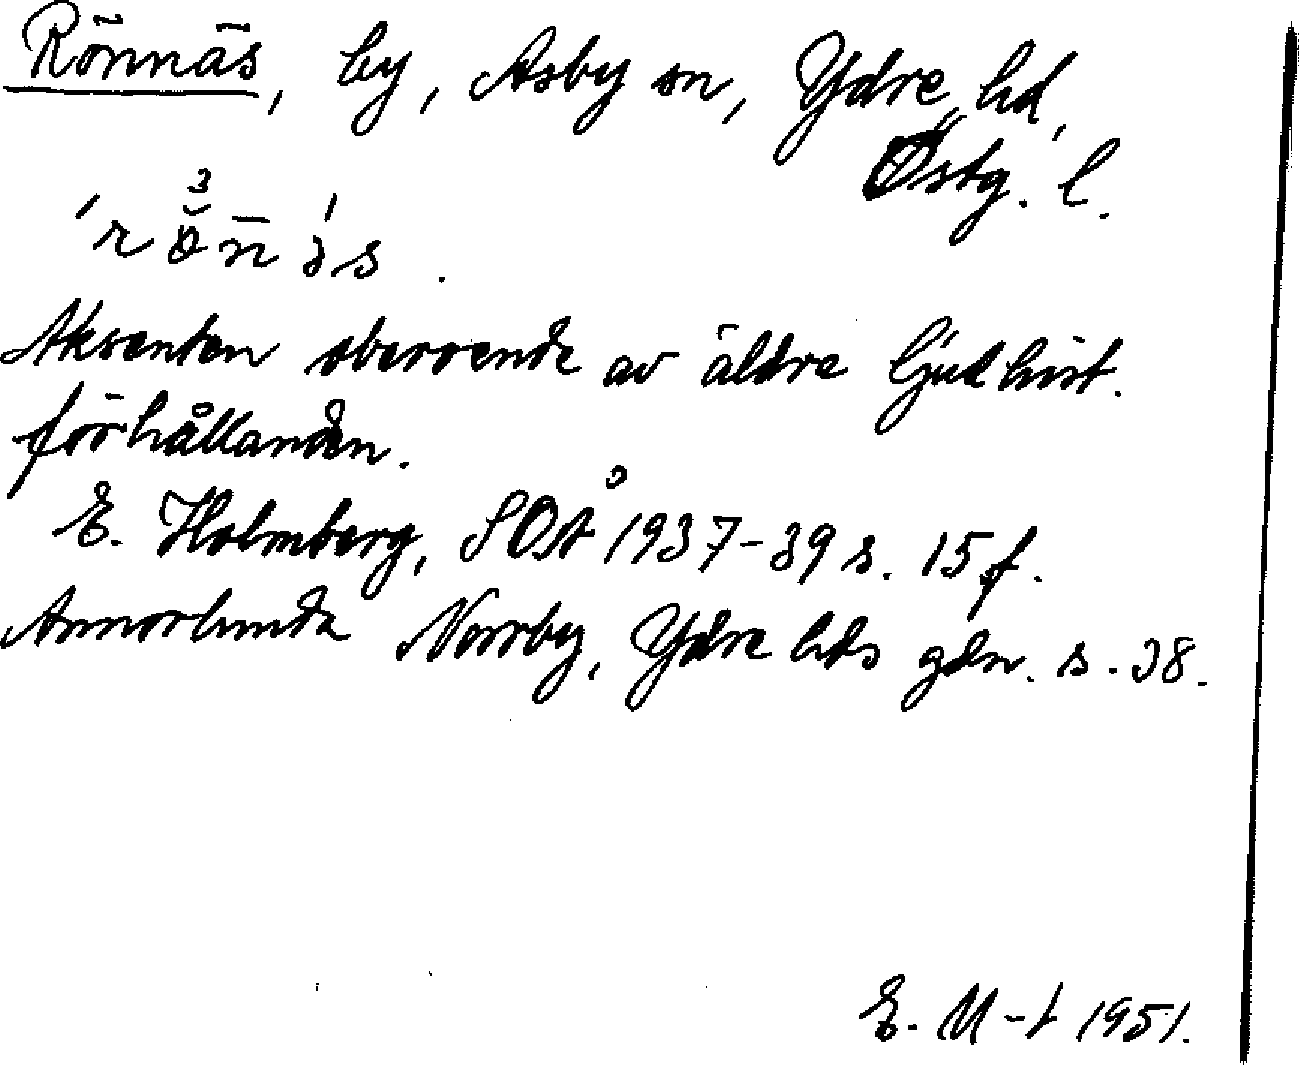 Rönnäs, by, Asby sn, Ydre hd,
Östg. l.
Aksenten oberoende av äldre ljudhist.
förhållanden.
E. Holmberg, SOÅ 1937-39 s. 15 f.
Annorlunda Norrby, Ydre hds gdn. s. 38.
E. M-t 1951.